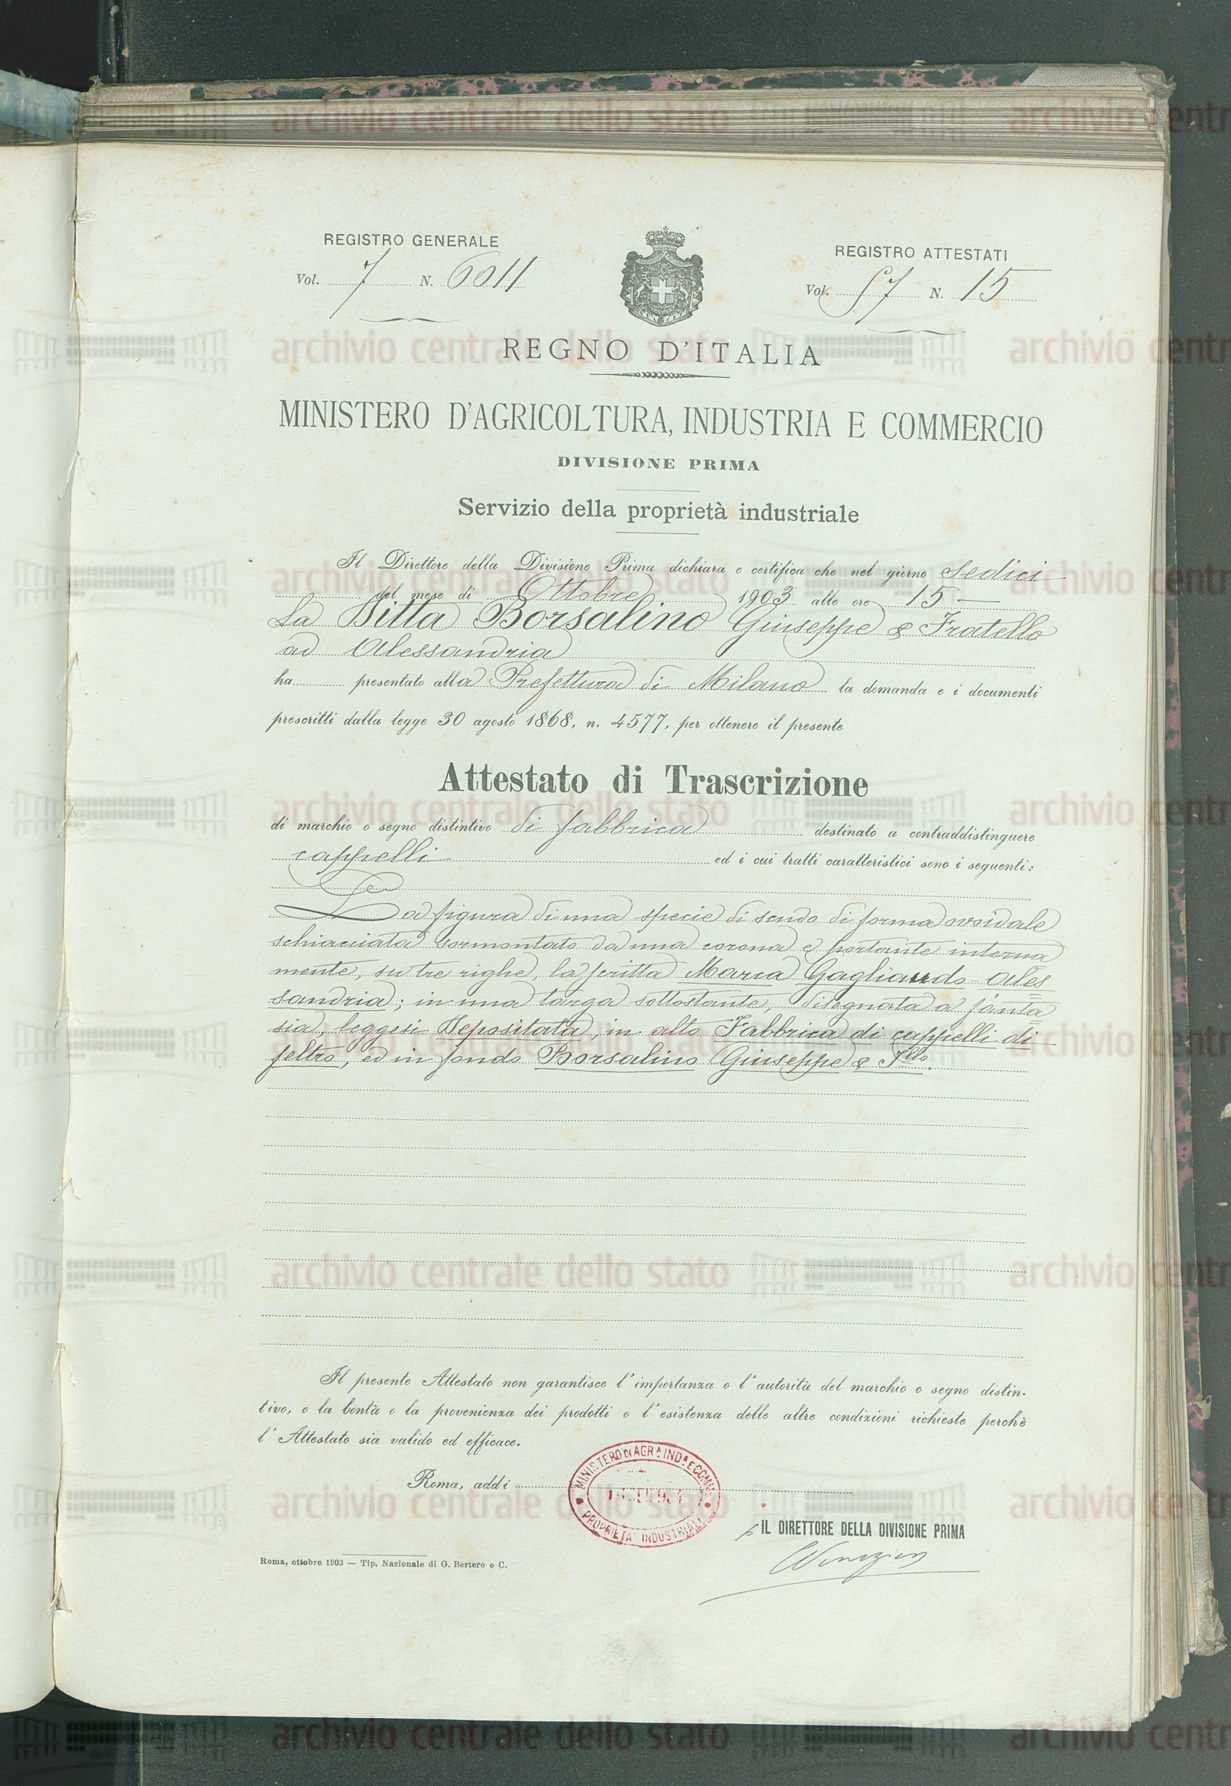 REGISTRO GENERALE
Vol. 7 N. 6011
REGISTRO ATTESTATI
Vol. 57 N. 15
REGNO D'ITALIA
MINISTERO D'AGRICOLTURA, INDUSTRIA E COMMERCIO
DIVISIONE PRIMA
Servizio della proprietà industriale
Il Direttore della Divisione Prima dichiara e certifica che nel giorno sedici
del mese di Ottobre 1903 alle ore 15
La Ditta Borsalino Giuseppe & Fratello
ad Alessandria
ha presentato alla Prefettura di Milano la domanda e i documenti
prescritti dalla legge 30 agosto 1868, n. 4577, per ottenere il presente
Attestato di Trascrizione
di marchio o segno distintivo di fabbrica destinato a contraddistinguere
cappelli ed i cui tratti caratteristici sono i seguenti:
La figura di una specie di scudo di forma ovoidale
schiacciata sormontato da una corona e portante interna
mente, su tre righe, la scritta Marca Gagliaudo Ales
sandria; in una targa sottostante, disegnata a fanta
sia, leggesi Depositata, in alto Fabbrica di cappelli di
feltro, ed in fondo Borsalino Giuseppe & F.llo.
Il presente Attestato non garantisce l'importanza o l'autorità del marchio o segno distin-
tivo, o la bontà o la provenienza dei prodotti o l'esistenza delle altre condizioni richieste perchè
l'Attestato sia valido ed efficace.
Roma, addì
MINISTERO DI AGR. IND. E COMM.
PROPRIETA' INDUSTRIALE
IL DIRETTORE DELLA DIVISIONE PRIMA
Roma, ottobre 1903 — Tip. Nazionale di G. Bertero e C.
archivio centrale dello stato